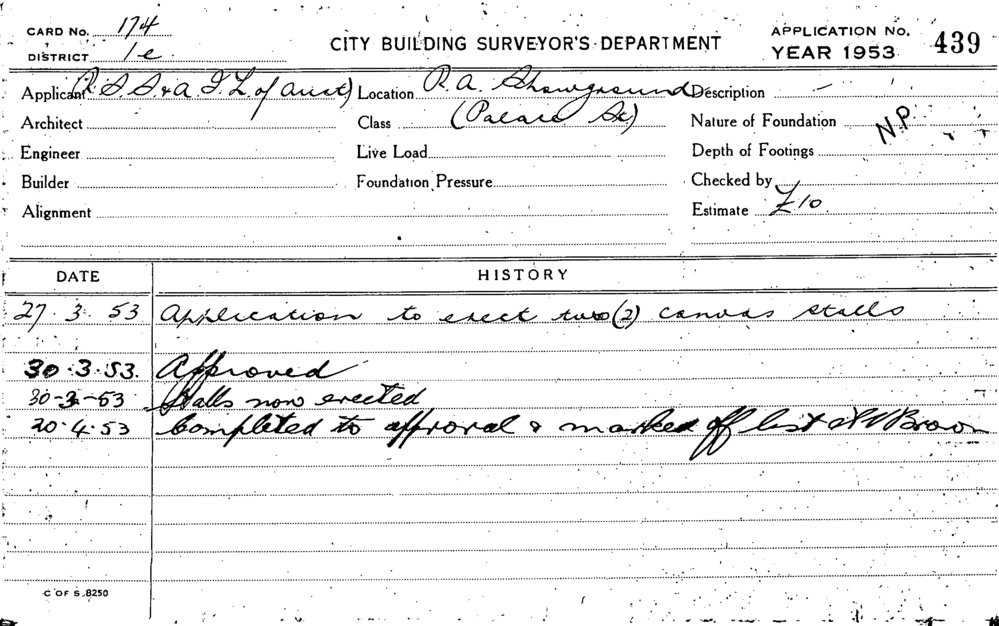 CARD No. 174
DISTRICT 1e
CITY BUILDING SURVEYOR'S DEPARTMENT
APPLICATION No. 439
YEAR 1953
Applicant R. S. S. & A. I. L. of Aust) Location R. A. Showground Description -
Architect Class (Palace St) Nature of Foundation N.P.
Engineer Live Load Depth of Footings
Builder Foundation Pressure Checked by
Alignment Estimate £10.
DATE HISTORY
27 3 53 Application to erect two (2) canvas stalls
30.3.53. Approved
30-3-53 Stalls now erected
20.4.53 Completed to approval & marked off list Brown
C OF S. 8250